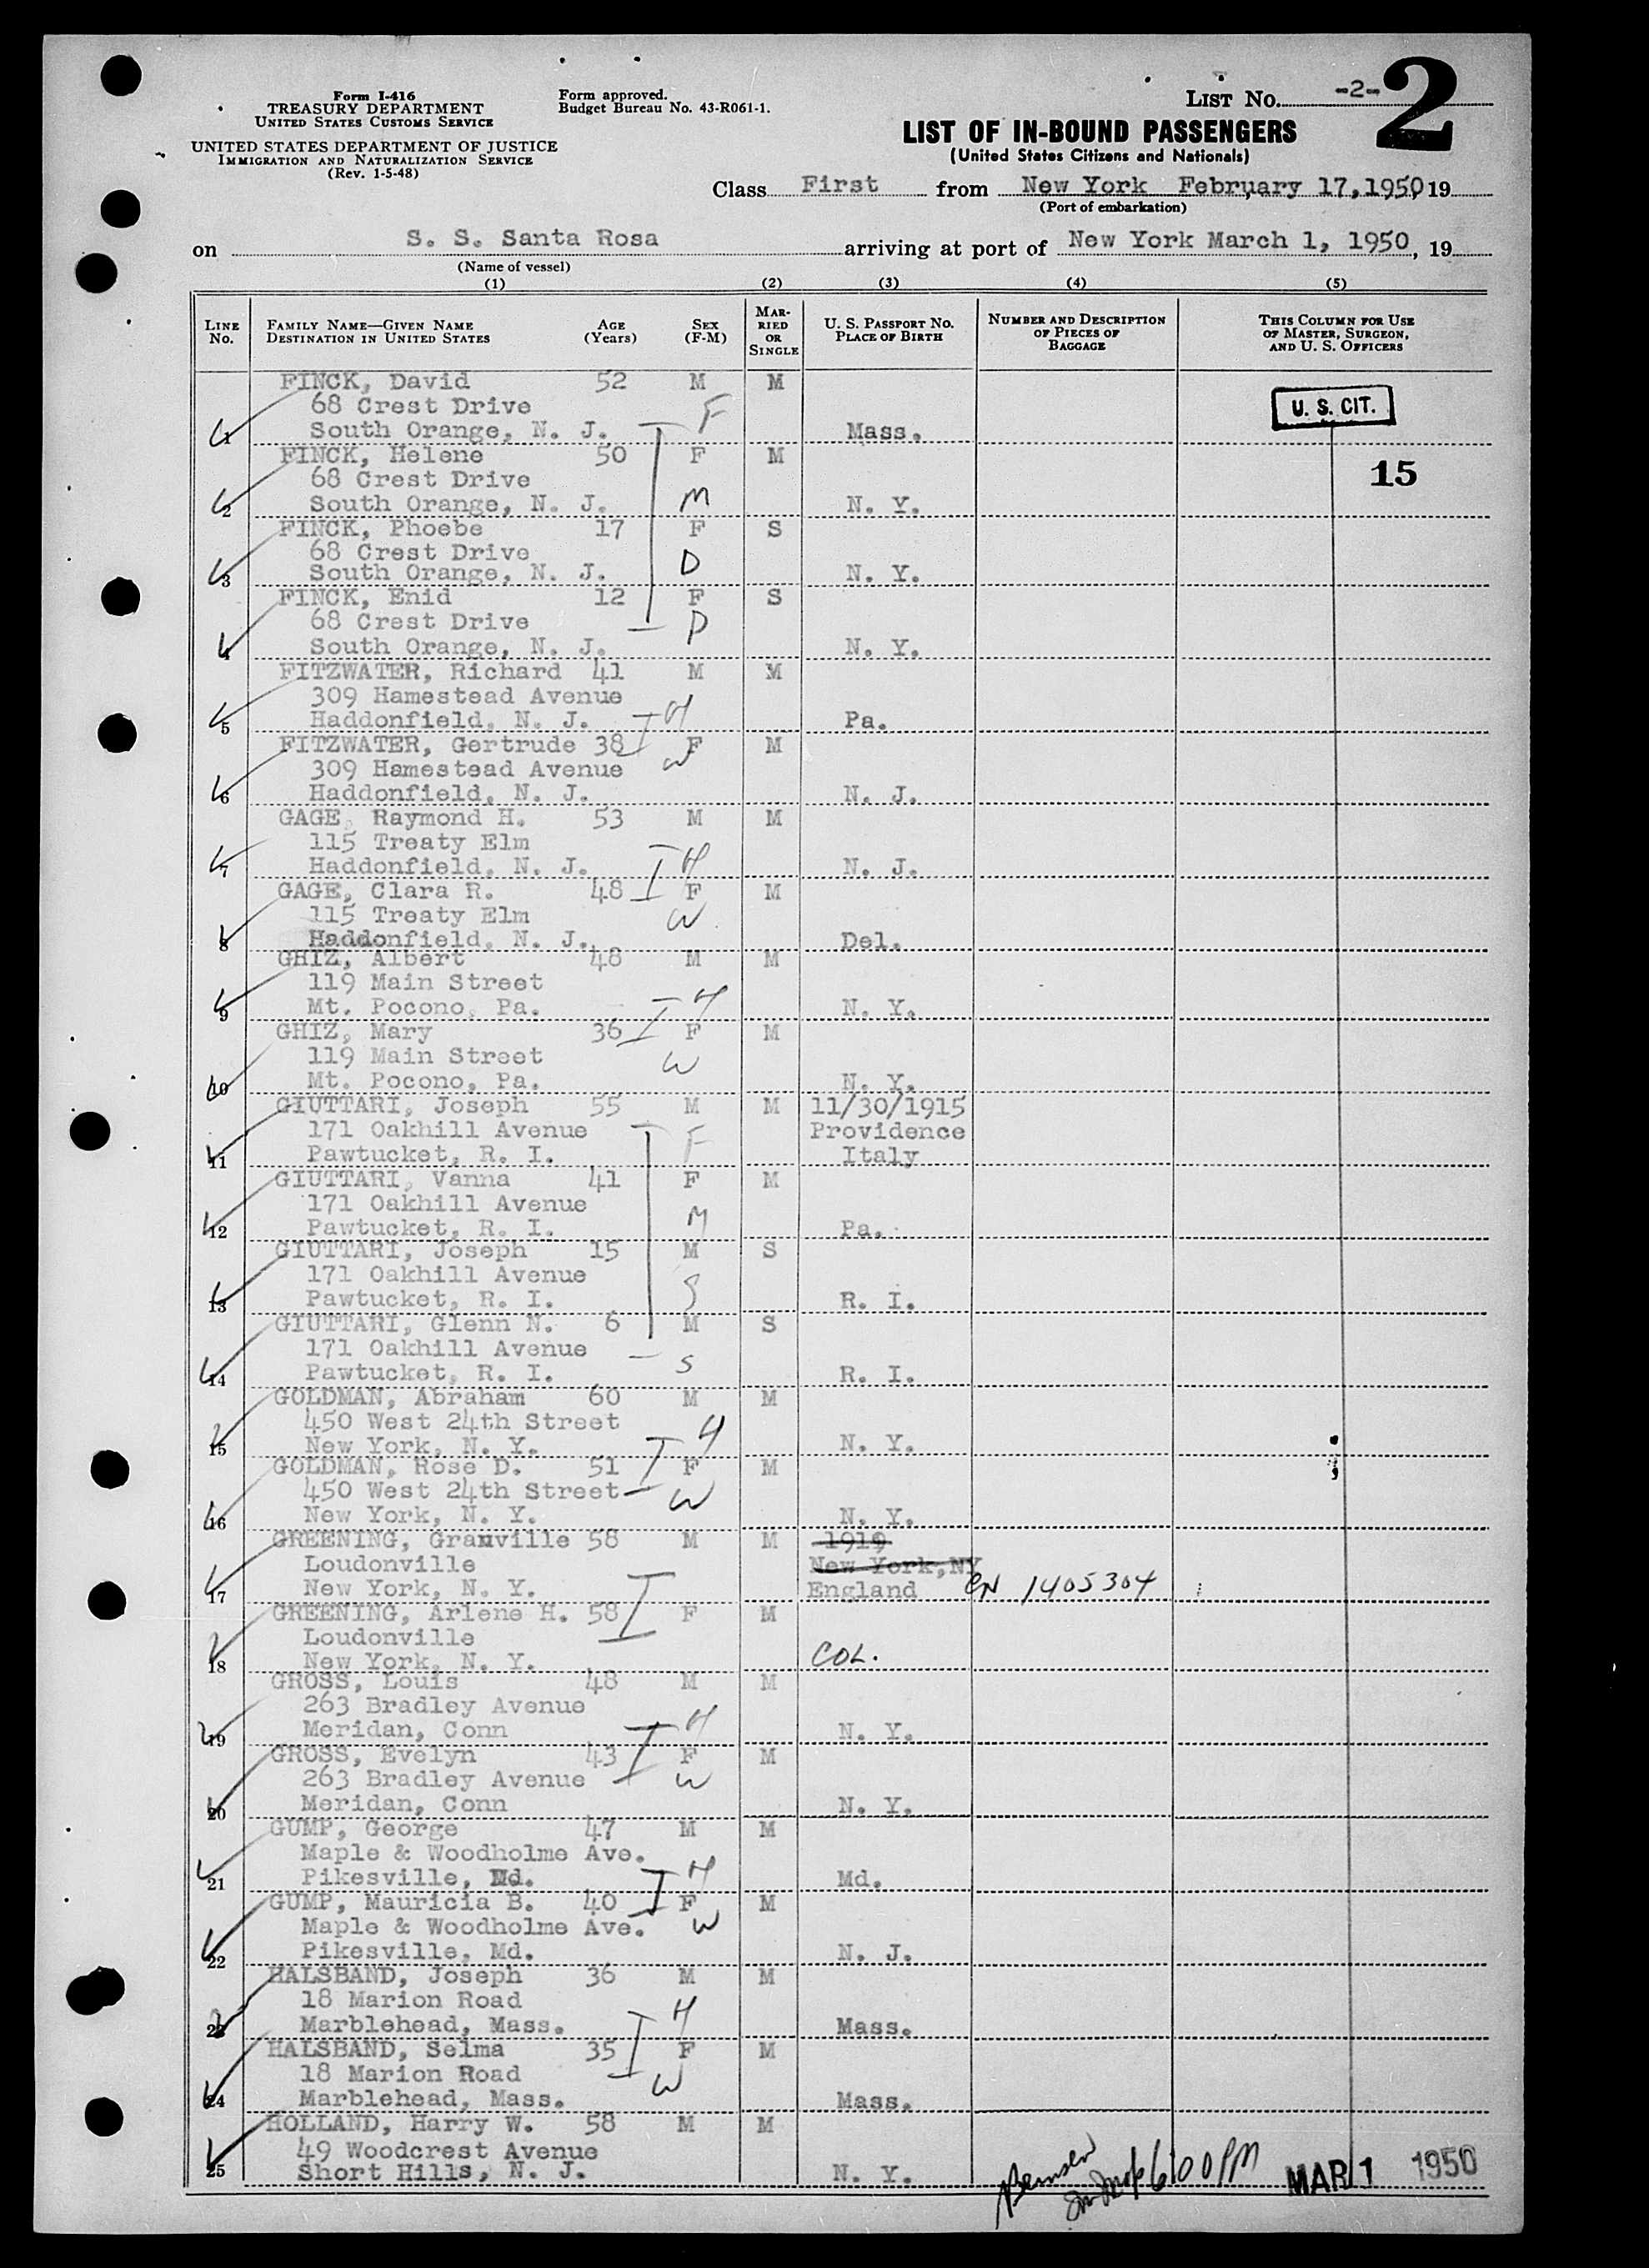 Form I-416
TREASURY DEPARTMENT
UNITED STATES CUSTOMS SERVICE
UNITED STATES DEPARTMENT OF JUSTICE
IMMIGRATION AND NATURALIZATION SERVICE
(Rev. 1-5-48)
Form approved.
Budget Bureau No. 43-R061-1.
LIST NO. -2- 2
LIST OF IN-BOUND PASSENGERS
(United States Citizens and Nationals)
Class First from New York February 17, 1950 19
(Port of embarkation)
on S. S. Santa Rosa arriving at port of New York March 1, 1950, 19
(Name of vessel)
(1) (2) (3) (4) (5)
LINE NO.
FAMILY NAME—GIVEN NAME
DESTINATION IN UNITED STATES
AGE (Years)
SEX (F-M)
MARRIED OR SINGLE
U. S. PASSPORT NO.
PLACE OF BIRTH
NUMBER AND DESCRIPTION OF PIECES OF BAGGAGE
THIS COLUMN FOR USE OF MASTER, SURGEON, AND U. S. OFFICERS
FINCK, David 52 M M
68 Crest Drive F U. S. CIT.
1 South Orange, N. J. Mass.
FINCK, Helene 50 F M
68 Crest Drive 15
2 South Orange, N. J. M N. Y.
FINCK, Phoebe 17 F S
68 Crest Drive D
3 South Orange, N. J. N. Y.
FINCK, Enid 12 F S
68 Crest Drive D
4 South Orange, N. J. N. Y.
FITZWATER, Richard 41 M M
309 Hamestead Avenue
5 Haddonfield, N. J. H Pa.
FITZWATER, Gertrude 38 F M
309 Hamestead Avenue W
6 Haddonfield, N. J. N. J.
GAGE, Raymond H. 53 M M
115 Treaty Elm
7 Haddonfield, N. J. H N. J.
GAGE, Clara R. 48 F M
115 Treaty Elm W
8 Haddonfield, N. J. Del.
GHIZ, Albert 48 M M
119 Main Street
9 Mt. Pocono, Pa. H N. Y.
GHIZ, Mary 36 F M
119 Main Street W
10 Mt. Pocono, Pa. N. Y.
GIUTTARI, Joseph 55 M M 11/30/1915
171 Oakhill Avenue F Providence
11 Pawtucket, R. I. Italy
GIUTTARI, Vanna 41 F M
171 Oakhill Avenue M
12 Pawtucket, R. I. Pa.
GIUTTARI, Joseph 15 M S
171 Oakhill Avenue S
13 Pawtucket, R. I. R. I.
GIUTTARI, Glenn N. 6 M S
171 Oakhill Avenue S
14 Pawtucket, R. I. R. I.
GOLDMAN, Abraham 60 M M
450 West 24th Street H
15 New York, N. Y. N. Y.
GOLDMAN, Rose D. 51 F M
450 West 24th Street W
16 New York, N. Y. N. Y.
GREENING, Granville 58 M M 1919
Loudonville New York, NY
17 New York, N. Y. England CN 1405304
GREENING, Arlene H. 58 F M
Loudonville
18 New York, N. Y. COL.
GROSS, Louis 48 M M
263 Bradley Avenue H
19 Meridan, Conn N. Y.
GROSS, Evelyn 43 F M
263 Bradley Avenue W
20 Meridan, Conn N. Y.
GUMP, George 47 M M
Maple & Woodholme Ave.
21 Pikesville, Md. H Md.
GUMP, Mauricia B. 40 F M
Maple & Woodholme Ave. W
22 Pikesville, Md. N. J.
HALSBAND, Joseph 36 M M
18 Marion Road H
23 Marblehead, Mass. Mass.
HALSBAND, Selma 35 F M
18 Marion Road W
24 Marblehead, Mass. Mass.
HOLLAND, Harry W. 58 M M
49 Woodcrest Avenue
25 Short Hills, N. J. N. Y.
6:00 PM MAR 1 1950